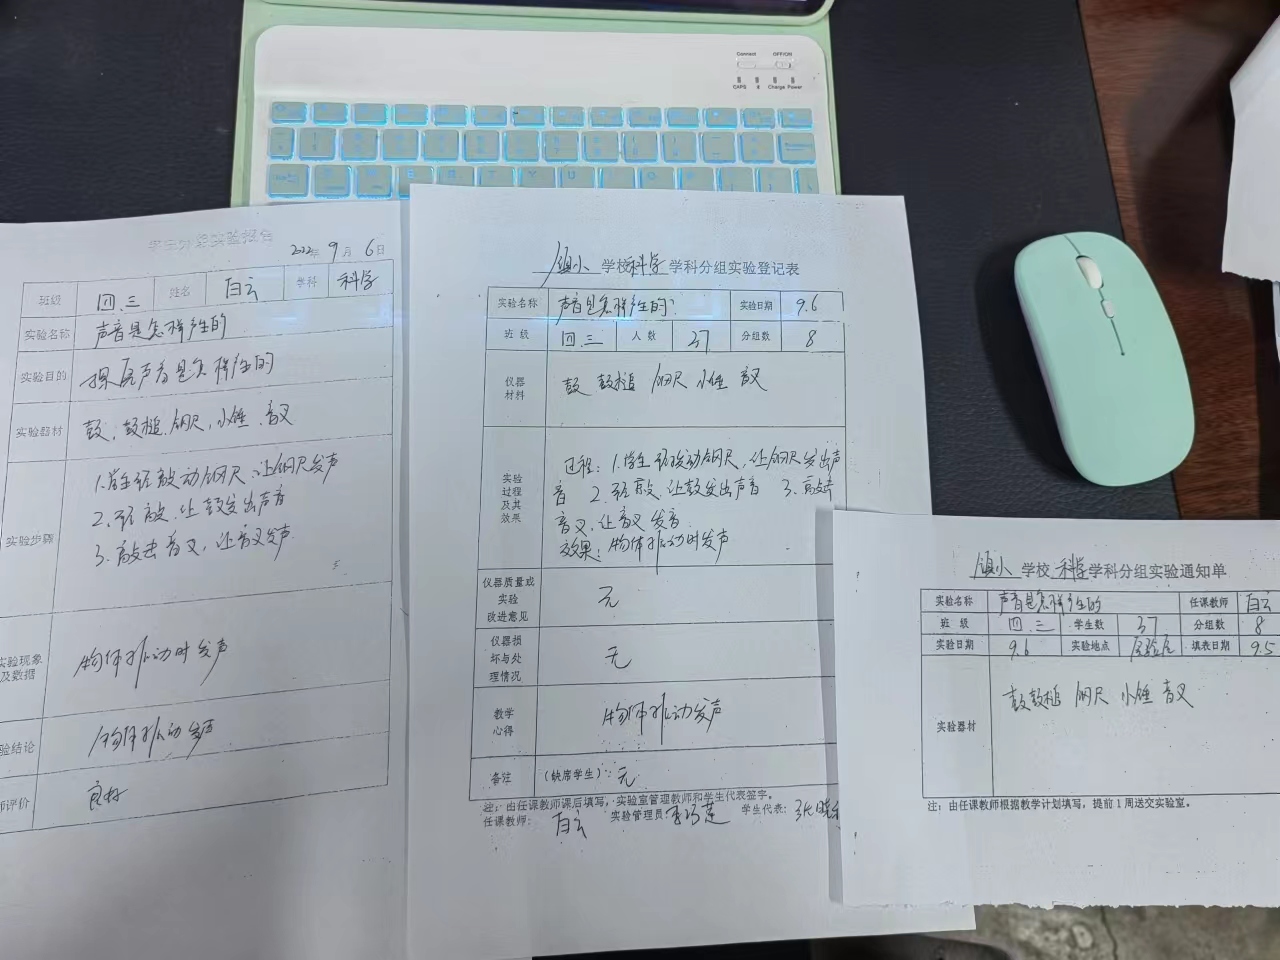 Connect OFF/ON
CAPS Charge Power
学生分组实验报告
2022年 9月 6日
班级 四.三 姓名 白云 学科 科学
实验名称 声音是怎样产生的
实验目的 探究声音是怎样产生的
实验器材 鼓、鼓槌、钢尺、小锤、音叉
实验步骤
1.学生轻敲动钢尺、让钢尺发声
2.轻敲.让鼓发出声音
3.敲击音叉,让音叉发声
实验现象及数据 物体振动时发声
验结论 物体振动发声
师评价 良好
镇小 学校科学学科分组实验登记表
实验名称 声音是怎样产生的? 实验日期 9.6
班 级 四.三 人 数 37 分组数 8
仪器材料 鼓 鼓槌 钢尺 小锤 音叉
实验过程及其效果
过程:1.学生轻拨动钢尺,让钢尺发出声
音 2.轻敲.让鼓发出声音 3.敲击
音叉,让音叉发音
效果:物体振动时发声
仪器质量或实验改进意见 无
仪器损坏与处理情况 无
教学心得 物体振动发声
备注 (缺席学生):无
注:由任课教师课后填写,实验室管理教师和学生代表签字。
任课教师: 白云 实验管理员: 学生代表:
镇小 学校 科学学科分组实验通知单
实验名称 声音是怎样产生的 任课教师 白云
班 级 四.三 学生数 37 分组数 8
实验日期 9.6 实验地点 实验室 填表日期 9.5
实验器材 鼓鼓槌 钢尺 小锤 音叉
注:由任课教师根据教学计划填写,提前1周送交实验室。